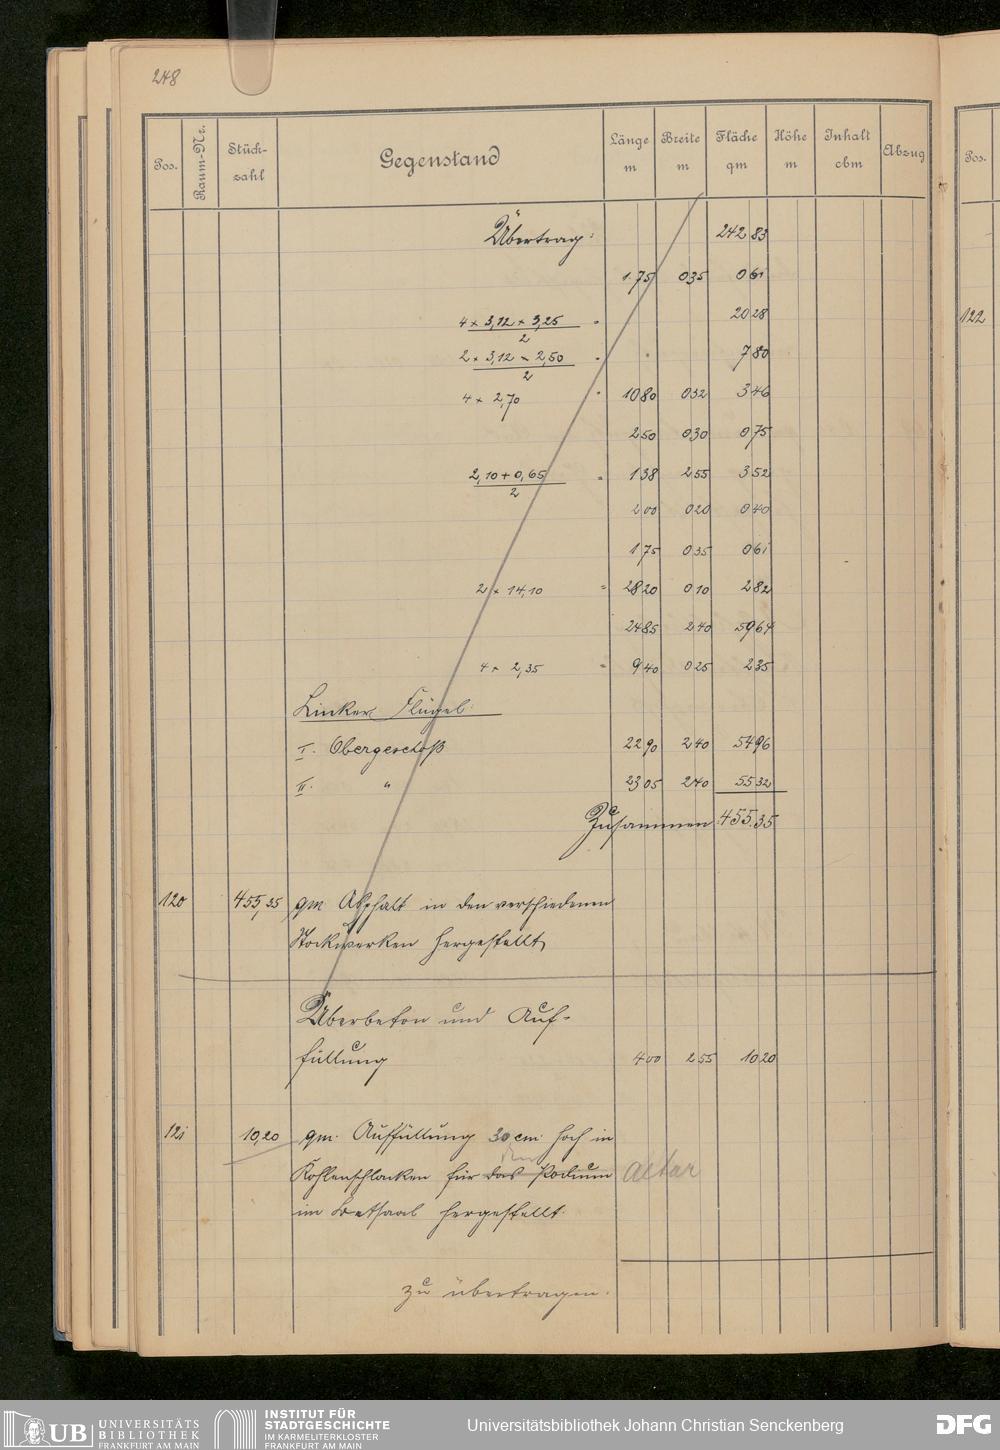 248
Pos. Raum-Nr. Stück-zahl Gegenstand Länge m Breite m Fläche qm Höhe m Inhalt cbm Abzug Pos.
Übertrag: 242 83
1 75 0 35 0 61
4 × 3,12 × 3,25 / 2 = 20 28
122
2 × 3,12 × 2,50 / 2 = 7 80
4 × 2,70 = 10 80 0 32 3 46
2 50 0 30 0 75
2,10 + 0,65 / 2 = 1 38 2 55 3 52
2 00 0 20 0 40
1 75 0 35 0 61
2 × 14,10 = 28 20 0 10 2 82
24 85 2 40 59 64
4 × 2,35 = 9 40 0 25 2 35
Linker Flügel:
I. Obergeschoß 22 90 2 40 54 96
II. " 23 05 2 40 55 32
Zusammen: 455.35
120 455,35 qm Asphalt in den verschiedenen
Stockwerken hergestellt,
Überbeton und Auf-
füllung 4 00 2 55 10 20
121 10,20 qm. Auffüllung 30 cm. hoch in
den
Kohlenschlacken für das Podium Altar
im Betsaal hergestellt.
zu übertragen.
UB UNIVERSITÄTS
BIBLIOTHEK
FRANKFURT AM MAIN
INSTITUT FÜR
STADTGESCHICHTE
IM KARMELITERKLOSTER
FRANKFURT AM MAIN
Universitätsbibliothek Johann Christian Senckenberg
DFG